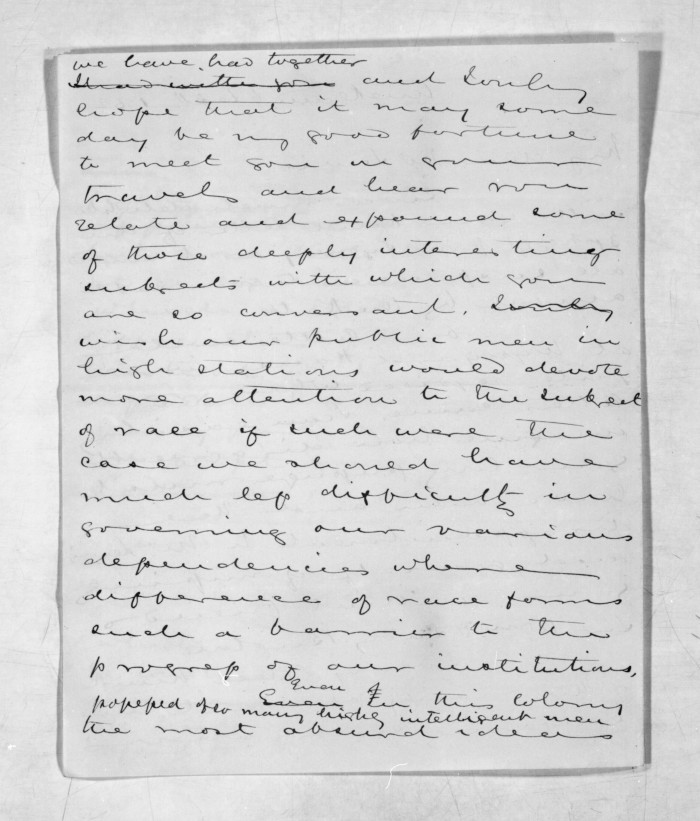 we have had together
I had with you and I only
hope that it may some
day be my good fortune
to meet you in your
travels and hear you
relate and expound some
of those deeply interesting
subjects with which you
are so conversant. I only
wish our public men in
high stations would devote
more attention to the subject
of race if such were the
case we should have
much less difficulty in
governing our various
dependencies where
difference of race forms
such a barrier to the
progress of our institutions.
Even if
Even In this Colony
possessed of so many highly intelligent men
the most absurd ideas